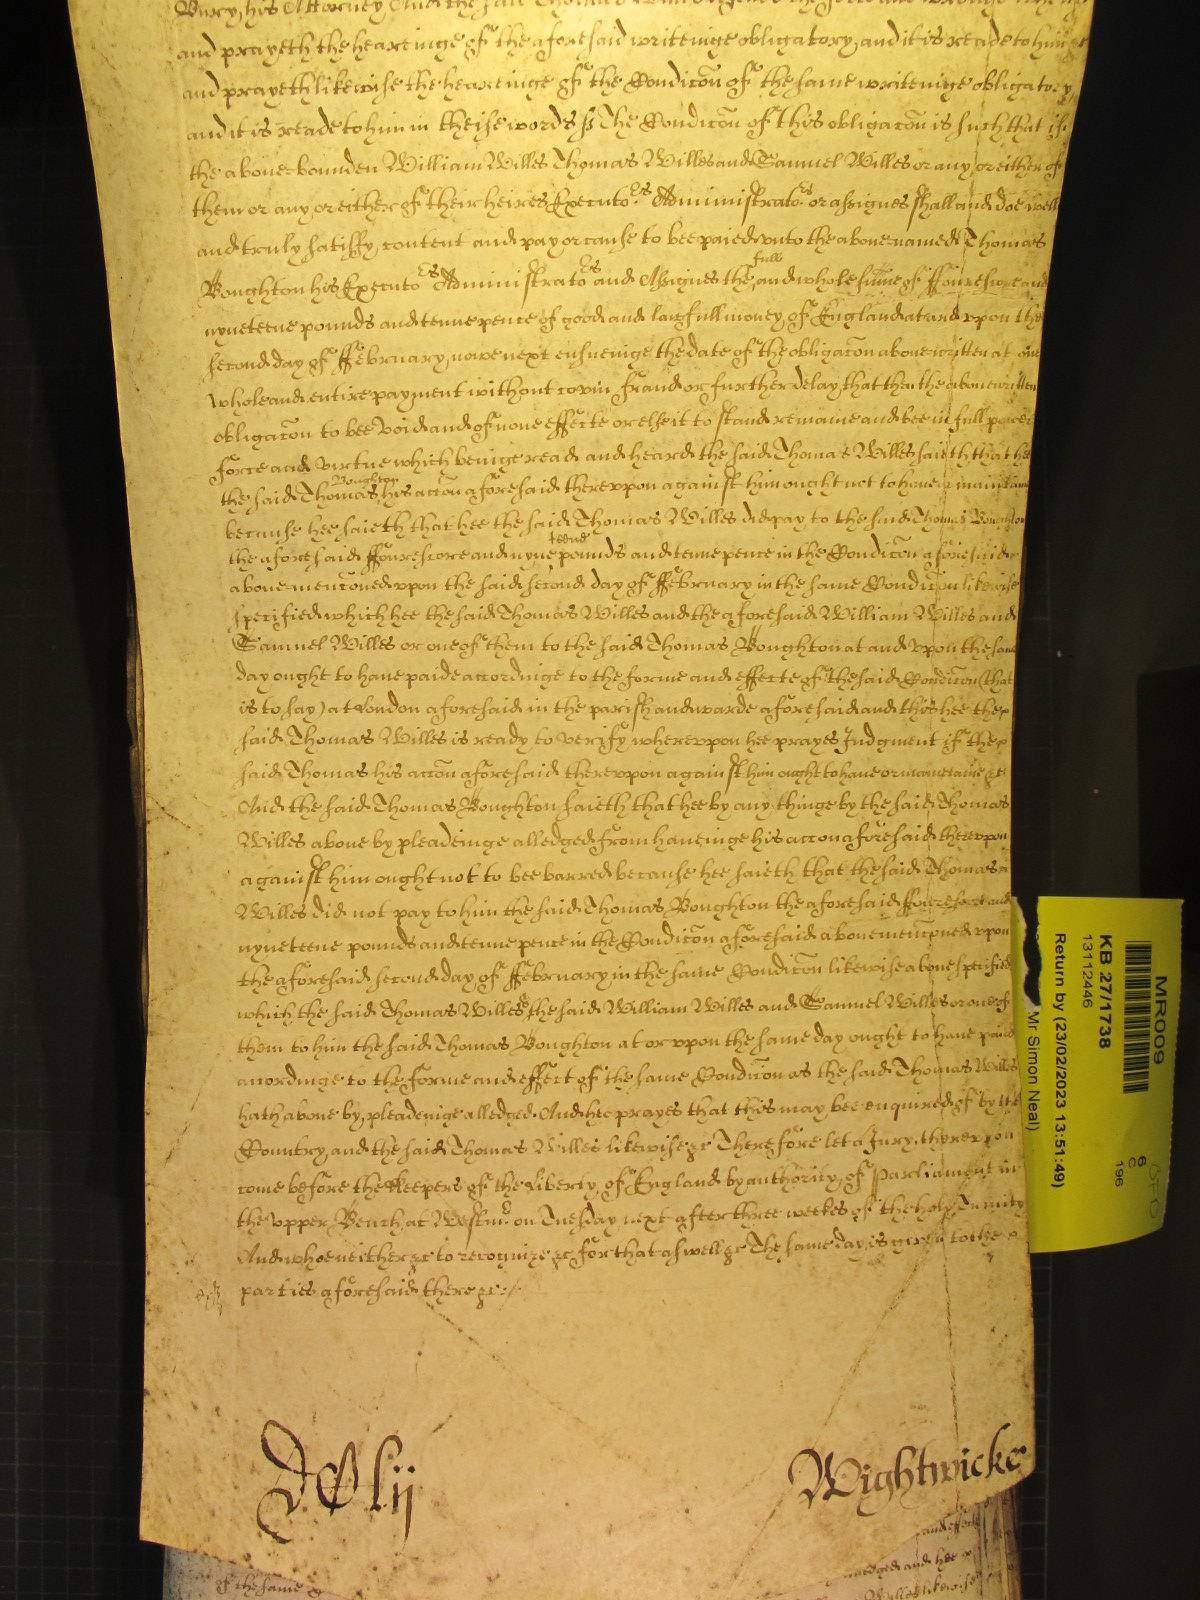 Bury, his Attorney And the said Thomas
and prayeth the heareinge of the aforesaid writeinge obligatory, and it is reade to him
and prayeth likewise the heareinge of the Condicōn of the same writeinge obligatory,
and it is reade to him in theise words ss The Condicōn of this obligacōn is such that if
the above bounden William Willes Thomas Willes and Samuel Willes or any or either of
them or any or either of their heires Executors Administrators or assignes shall and doe well
and truly satisfy, content and pay or cause to bee paied unto the above named Thomas
Boughton his Executors Administrators and Assignes the full and whole sum̄e of ffourescore and
nyneteene pounds and tenne pence of good and lawfull money, of England at and vpon the
second day of ffebruary, nowe next ensueinge the date of the obligacōn above written at one
whole and entire payment without covin fraud or further delay that then the above written
obligacōn to bee void and of none effecte or else it to stand remaine and bee in full power
force and virtue which beinge read and heard the said Thomas Willes saieth that hee
the said Thomas Boughton his accōn aforesaid therevpon against him ought not to have or maintaine
because hee saieth that hee the said Thomas Willes did pay to the said Thomas Boughton
the aforesaid ffourescore and nyneteene pounds and tenne pence in the Condicōn aforesaid
above mencōned vpon the said second day of ffebruary in the same Condicōn likewise
specified which hee the said Thomas Willes and the aforesaid William Willes and
Samuel Willes or one of them to the said Thomas Boughton at and vpon the same
day ought to have paide accordinge to the forme and effecte of the said Condicōn (that
is to say) at London aforesaid in the parish and warde aforesaid and this hee the
said Thomas Willes is ready to verify wherevpon hee prayes Judgment if the
said Thomas his accōn aforesaid therevpon against him ought to have or maintaine &c
And the said Thomas Boughton saieth that hee by any thinge by the said Thomas
Willes above by pleadeinge alledged from haveinge his accōn aforesaid therevpon
against him ought not to bee barred because hee saieth that the said Thomas
Willes did not pay to him the said Thomas Boughton the aforesaid ffourescore and
nyneteene pounds and tenne pence in the Condicōn aforesaid above mencōned vpon
the aforesaid second day of ffebruary in the same Condicōn likewise above specified
which the said Thomas Willes & the said William Willes and Samuel Willes or one of
them to him the said Thomas Boughton at or vpon the same day ought to have paied
accordinge to the forme and effect of the same Condicōn as the said Thomas Willes
hath above by, pleadeinge alledged. And hee prayes that this may bee enquired of by the
Country, and the said Thomas Willes likewise &c Therefore let a Jury, therevpon
come before the Keepers of the Liberty, of England by authority, of Parliament in
the vpper Bench at Westmr on Tuesday next after three weekes of the holy Trinity
And whoe neither &c to recognize &c for that aswell &c The same day, is given to the
parties aforesaid there &c:/
Wightwicke
of the same
and effecte
and hee
Willes likewise
MR009
6
C
196
KB 27/1738
13112446
Return by (23/02/2023 13:51:49)
Mr Simon Neal)